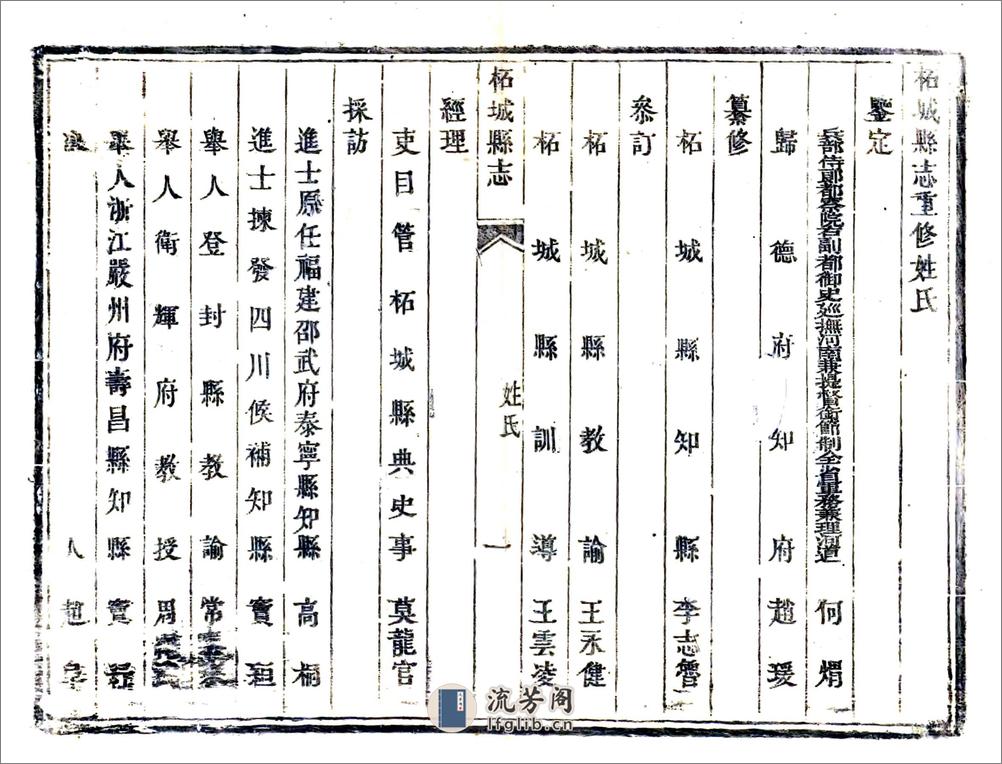 柘城縣志重修姓氏
鑒定
兵部侍郎都察院右副都御史巡撫河南兼提督銜節制全省軍務兼理河道 何煟
歸德府知府 趙瑗
纂修
柘城縣知縣 李志魯
叅訂
柘城縣教諭 王永健
柘城縣訓導 王雲凌
柘城縣志
姓氏
一
經理
吏目管柘城縣典史事 莫龍官
採訪
進士原任福建邵武府泰寧縣知縣 高桐
進士揀發四川候補知縣 竇洹
舉人登封縣教諭 常
舉人衛輝府教授 周
舉人浙江嚴州府壽昌縣知縣 竇
人 趙
流芳阁
lfglib.cn